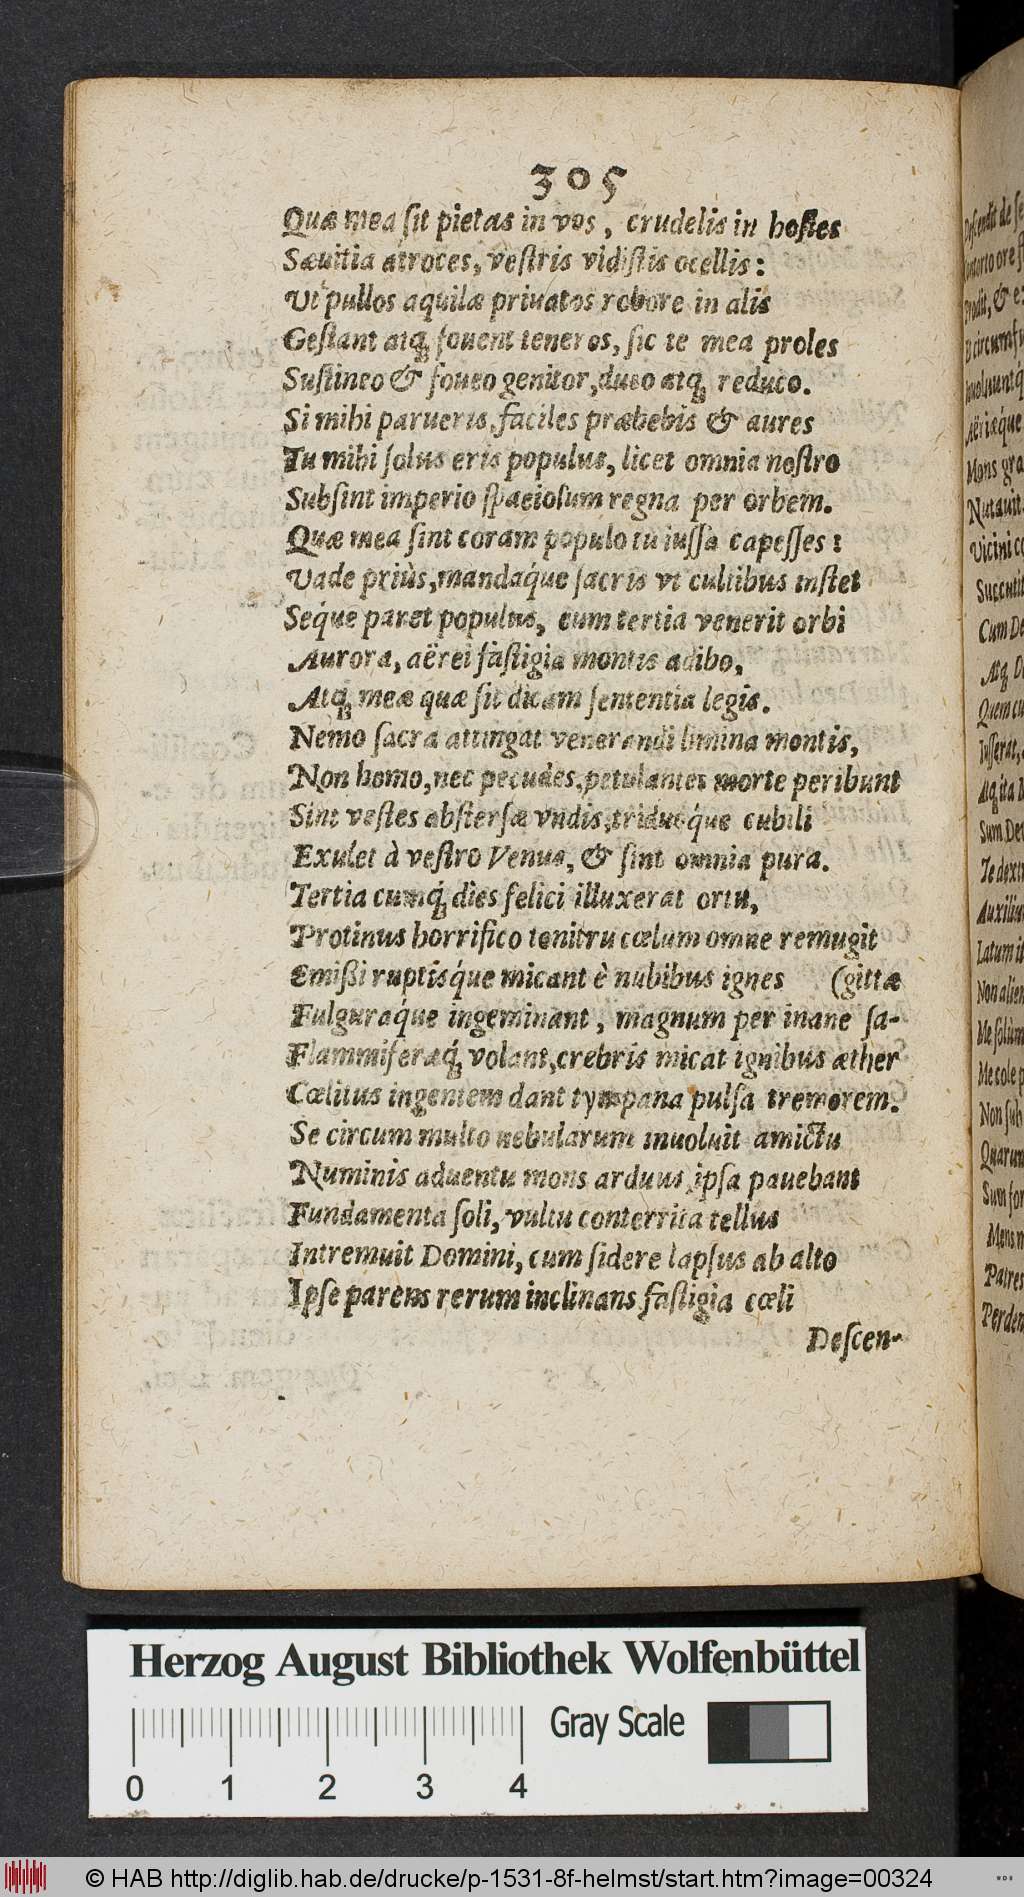 305
Quæ mea ſit pietas in vos, crudelis in hoſtes
Sæuitia atroces, veſtris vidiſtis ocellis:
Vt pullos aquilæ priuatos robore in alis
Geſtant atq; fouent teneros, ſic te mea proles
Suſtineo & foueo genitor, duco atq; reduco.
Si mihi parueris, faciles præbebis & aures
Tu mihi ſolus eris populus, licet omnia noſtro
Subſint imperio ſpacioſum regna per orbem.
Quæ mea ſint coram populo tu iuſſa capeſſes:
Vade priùs, mandaq́ue ſacris vt cultibus inſtet
Seq́ue paret populus, cum tertia venerit orbi
Aurora, aërei faſtigia montis adibo,
Atq; meæ quæ ſit dicam ſententia legis.
Nemo ſacra attingat venerandi limina montis,
Non homo, nec pecudes, petulantes morte peribunt
Sint veſtes abſterſæ vndis, triduoq́ue cubili
Exulet à veſtro Venus, & ſint omnia pura.
Tertia cumq́; dies felici illuxerat ortu,
Protinus horrifico tonitru cœlum omne remugit
Emißi ruptisq́ue micant è nubibus ignes (gittæ
Fulguraq́ue ingeminant, magnum per inane ſa-
Flammiferæq́; volant, crebris micat ignibus æther
Cœlitus ingentem dant tympana pulſa tremorem.
Se circum multo nebularum inuoluit amictu
Numinis aduentu mons arduus, ipſa pauebant
Fundamenta ſoli, vultu conterrita tellus
Intremuit Domini, cum ſidere lapſus ab alto
Ipſe parens rerum inclinans faſtigia cœli
Deſcen-
Herzog August Bibliothek Wolfenbüttel
Gray Scale
0 1 2 3 4
© HAB http://diglib.hab.de/drucke/p-1531-8f-helmst/start.htm?image=00324